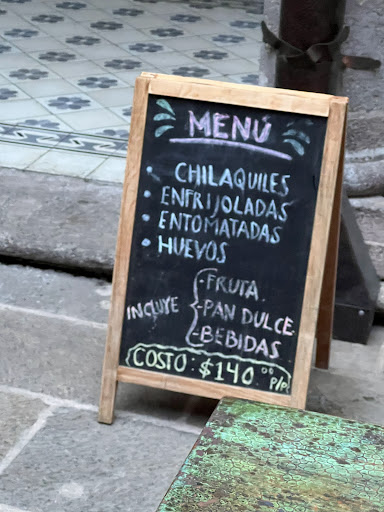 MENÚ
• CHILAQUILES
• ENFRIJOLADAS
• ENTOMATADAS
• HUEVOS
INCLUYE { -FRUTA.
-PAN DULCE
-BEBIDAS
COSTO: $140.00 P/P